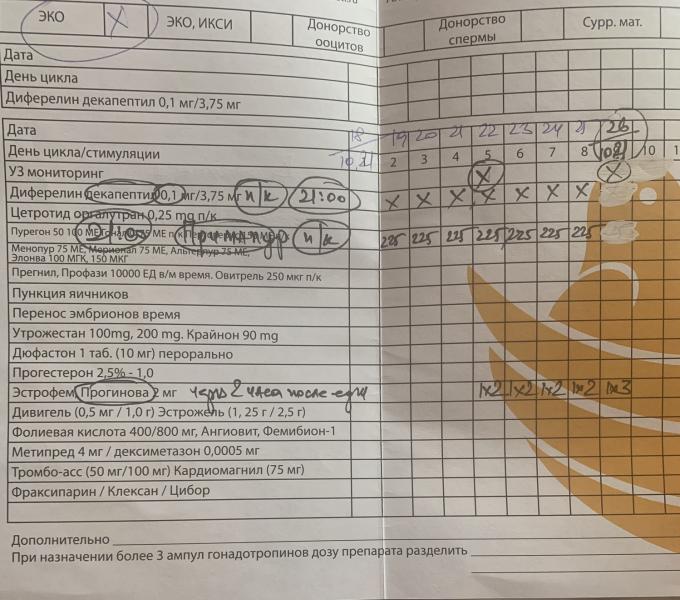 ЭКО X ЭКО, ИКСИ Донорство ооцитов Донорство спермы Сурр. мат.
Дата
День цикла
Диферелин декапептил 0,1 мг/3,75 мг
Дата 18 19 20 21 22 23 24 25 26
День цикла/стимуляции 2 3 4 5 6 7 8 10 1
УЗ мониторинг X X
Диферелин декапептил 0,1 мг/3,75 мг п/к 21:00 X X X X X X X
Цетротид оргалутран 0,25 mg п/к
Пурегон 50 100 МЕ п/к 225 225 225 225 225 225 225
Менопур 75 МЕ, Мерионал 75 МЕ, Альтерпур 75 МЕ,
Элонва 100 МГК, 150 МКГ
Прегнил, Профази 10000 ЕД в/м время. Овитрел 250 мкг п/к
Пункция яичников
Перенос эмбрионов время
Утрожестан 100mg, 200 mg. Крайнон 90 mg
Дюфастон 1 таб. (10 мг) перорально
Прогестерон 2,5% - 1,0
Эстрофем Прогинова 2 мг через 2 часа после еды 1x2 1x2 1x2 1x2 1x3
Дивигель (0,5 мг / 1,0 г) Эстрожель (1, 25 г / 2,5 г)
Фолиевая кислота 400/800 мг, Ангиовит, Фемибион-1
Метипред 4 мг / дексиметазон 0,0005 мг
Тромбо-асс (50 мг/100 мг) Кардиомагнил (75 мг)
Фраксипарин / Клексан / Цибор
Дополнительно
При назначении более 3 ампул гонадотропинов дозу препарата разделить